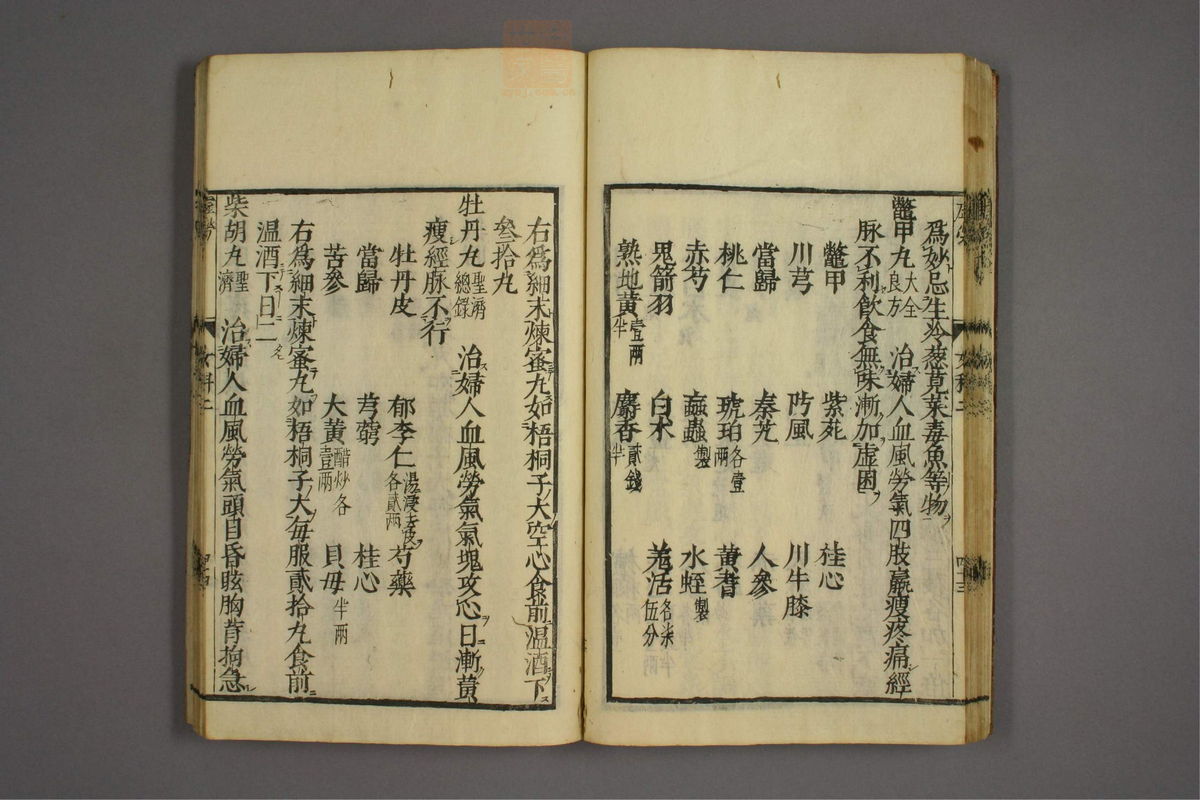 爲妙忌生冷葱莧菜毒魚等物
鼈甲丸 大全良方 治婦人血風勞氣四肢羸瘦疼痛經
脉不利飲食無味漸加虛困
鼈甲 紫菀 桂心
川芎 防風 川牛膝
當歸 秦艽 人參
桃仁 琥珀各壹兩 黄耆
赤芍 蝱蟲製 水蛭製
鬼箭羽 白朮 羌活各柒伍分
熟地黄壹兩半 麝香貳錢半
右爲細末煉蜜丸如梧桐子大空心食前温酒下
叄拾丸
牡丹丸 聖濟總錄 治婦人血風勞氣氣塊攻心日漸黄
瘦經脉不行
牡丹皮 郁李仁湯浸去皮各貳兩 芍藥
當歸 芎藭 桂心
苦參 大黄醋炒各壹兩 貝母半兩
右爲細末煉蜜丸如梧桐子大每服貳拾丸食前
温酒下日二
柴胡丸 聖濟 治婦人血風勞氣頭目昏眩胸背拘急